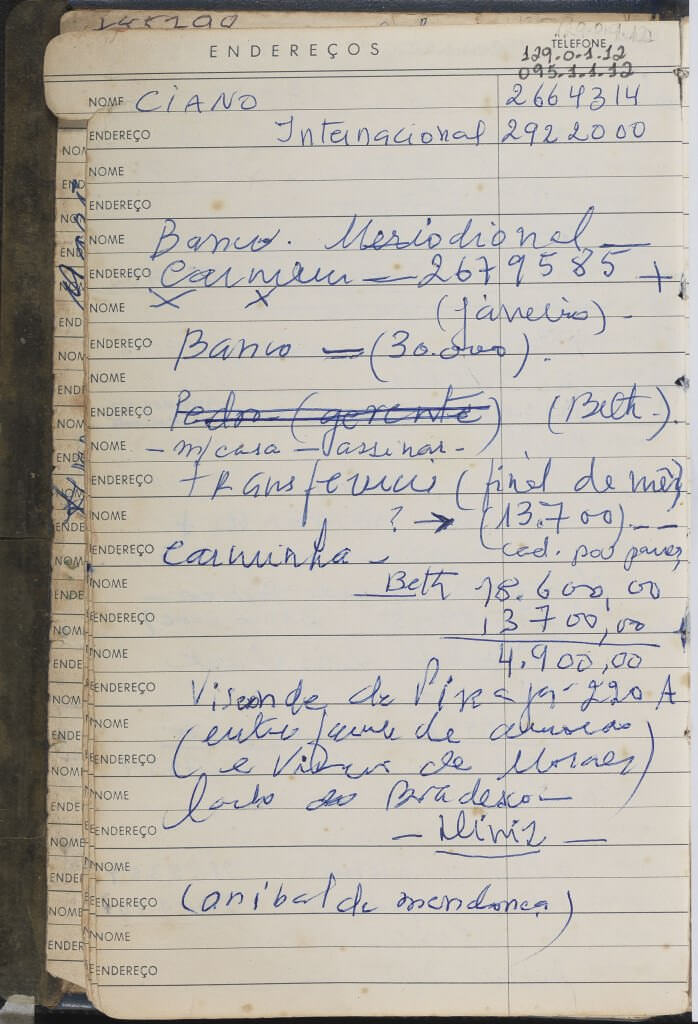 ENDEREÇOS
TELEFONE
129.0.1.12
095.1.1.12
NOME CIANO 2664314
ENDEREÇO Internacional 2922000
NOME
ENDEREÇO
NOME Banco. Meriodional —
ENDEREÇO Carmem — 2679585 +
NOME X X (janeiro) -
ENDEREÇO Banco — (30.000).
NOME
ENDEREÇO Pedro (gerente) (Beth).
NOME - m/casa - assinar -
ENDEREÇO transferencia (final de mês
NOME ? → (13.700). --
ENDEREÇO Carminha - cad. pou panç
NOME Beth 18.600,00
ENDEREÇO 13700,00
NOME 4.900,00
ENDEREÇO Visconde de Pirajá 220 A
NOME (entre de
ENDEREÇO e Vinicius de Moraes)
NOME lado do Bradesco -
ENDEREÇO — —
NOME
ENDEREÇO (anibal de mendonça)
NOME
ENDEREÇO